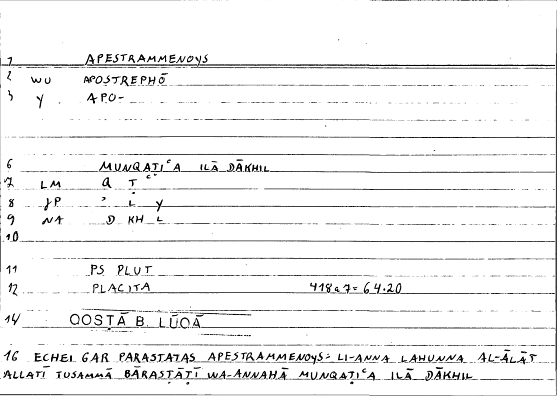 1 APESTRAMMENOYS
2 WU APOSTREPHŌ
3 Y APO-
6 MUNQAṬIᶜA ILĀ DĀKHIL
7 LM Q Ṭ ᶜ
8 JP ʾ L Y
9 NA D KH L
10
11 PS PLUT
12 PLACITA 418a7 = 64.20
14 QOSṬĀ B. LŪQĀ
16 ECHEI GAR PARASTATAS APESTRAMMENOYS: LI-ANNA LAHUNNA AL-ĀLĀT
ALLATĪ TUSAMMĀ BĀRASṬĀṬĪ WA-ANNAHĀ MUNQAṬIᶜA ILĀ DĀKHIL